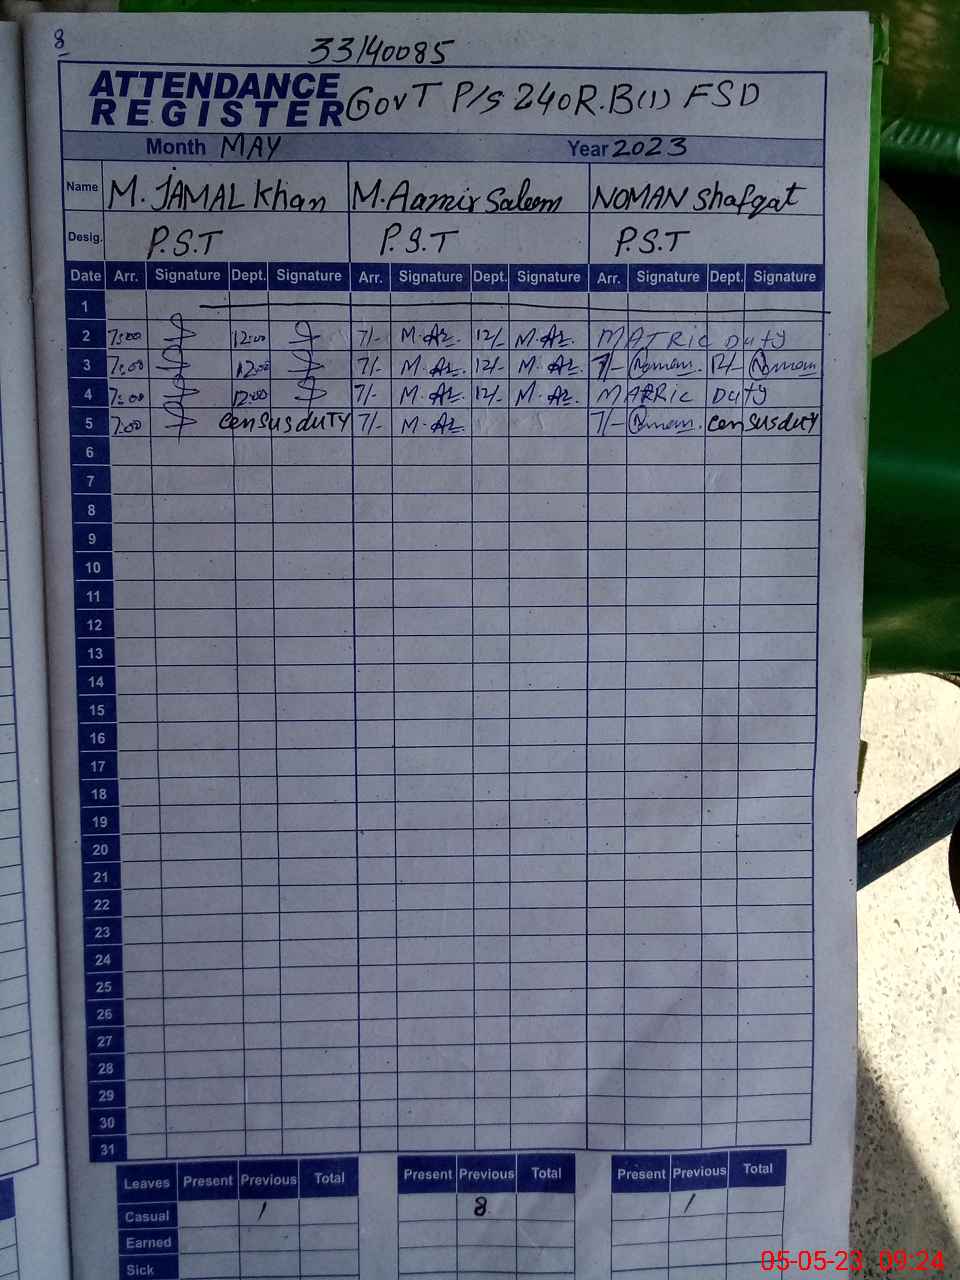 8
33140085
ATTENDANCE REGISTER GovT P/S 240R.B(1) FSD
Month MAY Year 2023
Name M. JAMAL Khan M. Aamir Saleem NOMAN Shafqat
Desig. P.S.T P.S.T P.S.T
Date Arr. Signature Dept. Signature Arr. Signature Dept. Signature Arr. Signature Dept. Signature
1
2 7:00 12:00 7/- 12/- MATRic Duty
3 7:00 12:00 7/- 12/- 7/- Noman 12/- Noman
4 7:00 12:00 7/- 12/- MATRic Duty
5 7:00 census duTY 7/- 7/- Noman census duTY
6
7
8
9
10
11
12
13
14
15
16
17
18
19
20
21
22
23
24
25
26
27
28
29
30
31
Leaves Present Previous Total Present Previous Total Present Previous Total
Casual 1 8 1
Earned
Sick
05-05-23 09:24